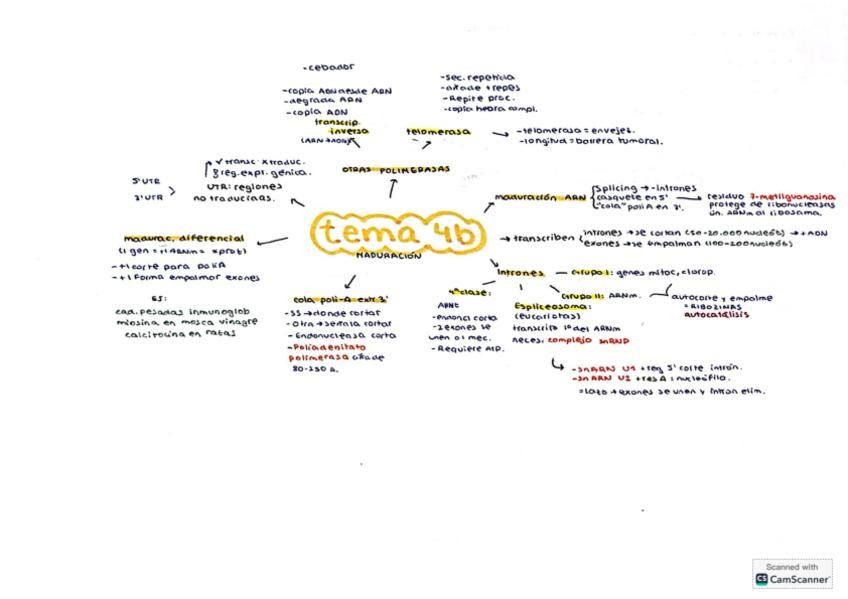 -cebador
-copia ADN desde ARN
-degrada ARN
-copia ADN
transcrip.
inversa
(ARN→ADN)
-sec. repetida
-añade +repes
-Repite proc.
-copia hebra compl.
telomerasa
→ -telomerasa = envejet.
-longitud = barrera tumoral.
OTRAS POLIMERASAS
✓ transc. x traduc.
reg. expr. génica.
5' UTR
3' UTR
UTR: regiones
no traducidas.
tema 4b
MADURACIÓN
maduración ARN
Splicing → -intrones
casquete en 5'
"cola" poliA en 3'.
→ residuo 7-metilguanosina
protege de ribonucleasas
un. ARNm al ribosoma.
→ transcriben
intrones → se cortan (50-20.000 nucleót) → + ADN
exones → se empalman (100-200 nucleót)
Intrones
Grupo I: genes mitoc, clorop.
Grupo II: ARNm.
autocorte y empalme
= RIBOZIMAS
autocatálisis
4ª clase:
ARNt
-endonucl corta
-2 exones se
unen
-Requiere ATP.
Espliceosoma:
(eucariotas)
transcrito 1º del ARNm
neces. complejo snRNP
-snARN U1 + reg 5' corte intrón.
-snARN U2 + res A: nucleófilo.
= lazo + exones se unen y intron elim.
madurac. diferencial
-+1 corte para poliA
-+1 forma empalmar exones
EJ:
cad. pesadas inmunoglob
miosina en mosca vinagre
calcitocina en ratas
cola poli-A extr 3'
-SS → donde cortar
-Otra → señala cortar
-Endonucleasa corta
-Poliadenilato
polimerasa añade
80-250 A.
Scanned with
CS CamScanner